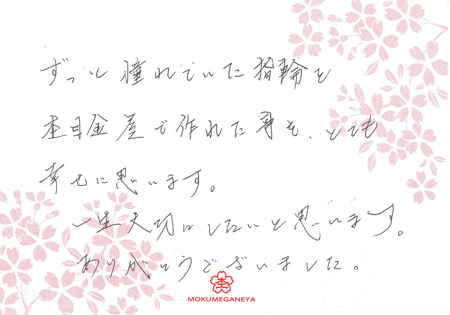 ずっと憧れていた指輪を
杢目金屋で作れた事を、とても
幸せに思います。
一生大切にしたいと思います。
ありがとうございました。
MOKUMEGANEYA